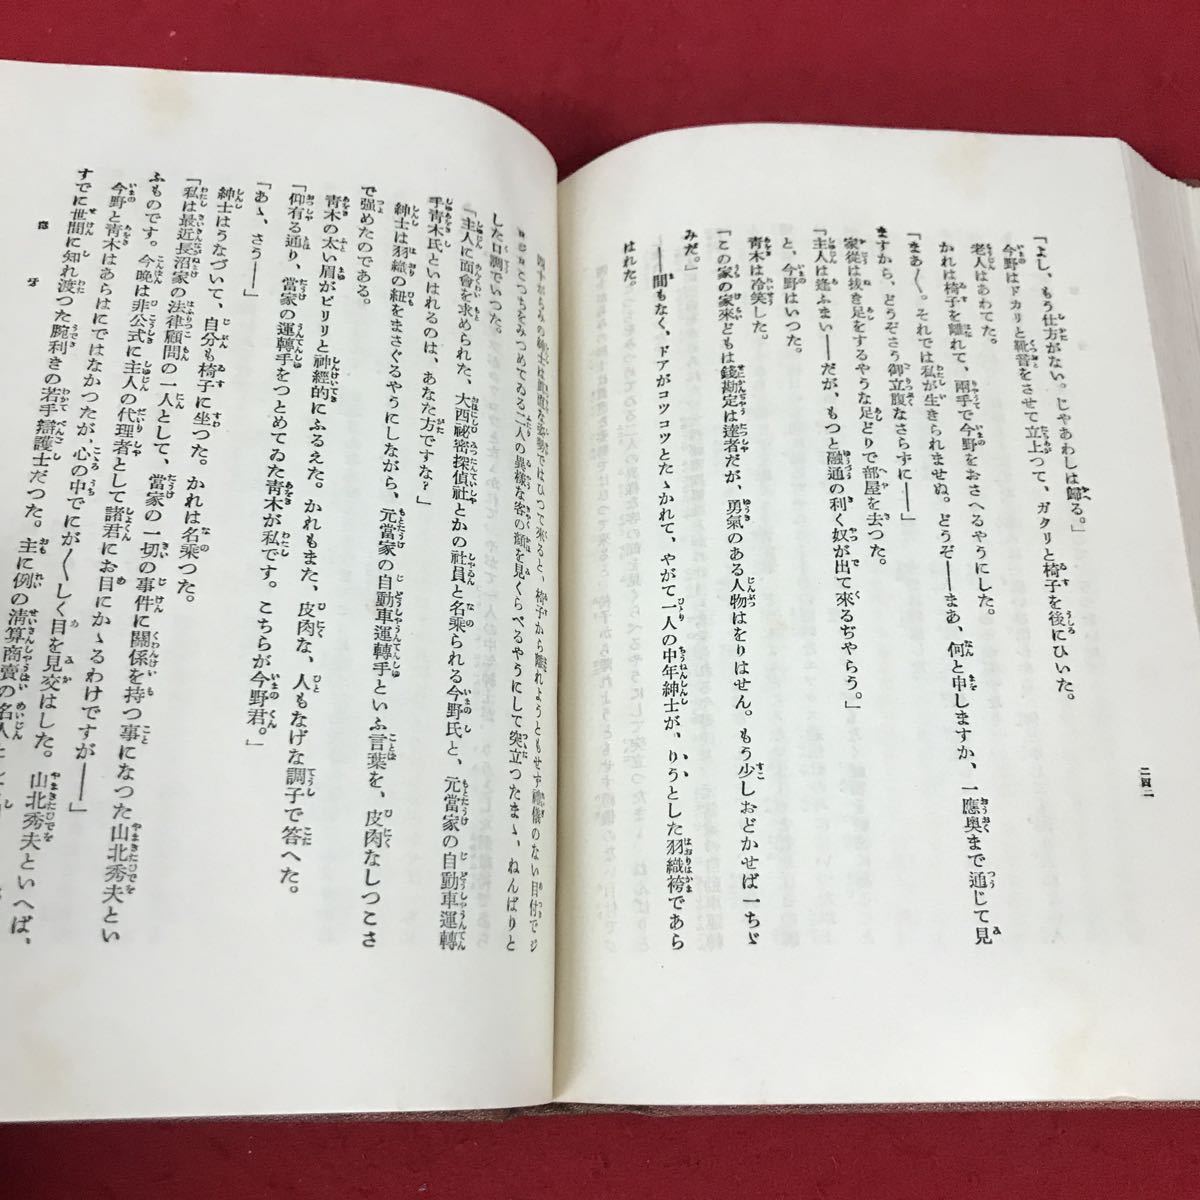 「よし、もう仕方がない。じやあわしは歸る。」
今野はドカリと靴音をさせて立上つて、ガタリと椅子を後にひいた。
老人はあわてた。
かれは椅子を離れて、兩手で今野をおさへるやうにした。
「まあ〱。それでは私が生きられませぬ。どうぞ――まあ、何と申しますか、一應奧まで通じて見
ますから、どうぞさう御立腹なさらずに――」
家從は拔き足をするやうな足どりで部屋を去つた。
「主人は逢ふまい――だが、もつと融通の利く奴が出て來るぢやらう。」
と、今野はいつた。
青木は冷笑した。
「この家の家來どもは錢勘定は達者だが、勇氣のある人物はをりはせん。もう少しおどかせば一ちゞ
みだ。」
――間もなく、ドアがコツコツとたゝかれて、やがて一人の中年紳士が、りうとした羽織袴であら
はれた。
二四二
四十がらみの紳士は眞直な姿勢ではひつて來ると、椅子から離れようともせず禮儀のない目付でジ
ロジロとこつちをみつめてゐる二人の異樣な客の顏を見くらべるやうにして突立つたまゝ、ねんばりと
した口調でいつた。
「主人に面會を求められた、大西祕密探偵社とかの社員と名乘られる今野氏と、元當家の自動車運轉
手青木氏といはれるのは、あなた方ですな？」
紳士は羽織の紐をまさぐるやうにしながら、元當家の自動車運轉手といふ言葉を、皮肉なしつこさ
で强めたのである。
青木の太い眉がピリリと神經的にふるえた。かれもまた、皮肉な、人もなげな調子で答へた。
「仰有る通り、當家の運轉手をつとめてゐた青木が私です。こちらが今野君。」
「あゝ、さう――」
紳士はうなづいて、自分も椅子に坐つた。かれは名乘つた。
「私は最近長沼家の法律顧問の一人として、當家の一切の事件に關係を持つ事になつた山北秀夫とい
ふものです。今晚は非公式に主人の代理者として諸君にお目にかゝるわけですが――」
今野と青木はあらはにではなかつたが、心の中でにが〱しく目を見交はした。山北秀夫といへば、
すでに世間に知れ渡つた腕利きの若手辯護士だつた。主に例の清算商賣の名人